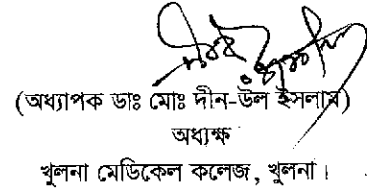 (অধ্যাপক ডাঃ মোঃ দীন-উল ইসলাম)
অধ্যক্ষ
খুলনা মেডিকেল কলেজ, খুলনা।